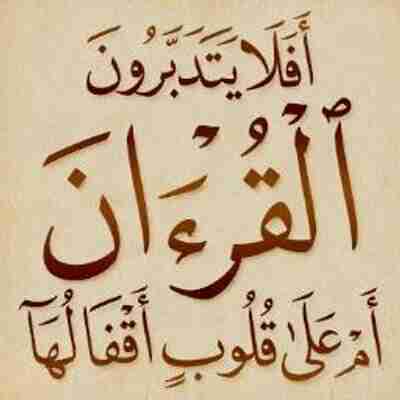 أَفَلَا يَتَدَبَّرُونَ
ٱلْقُرْءَانَ
أَمْ عَلَىٰ قُلُوبٍ أَقْفَالُهَآ